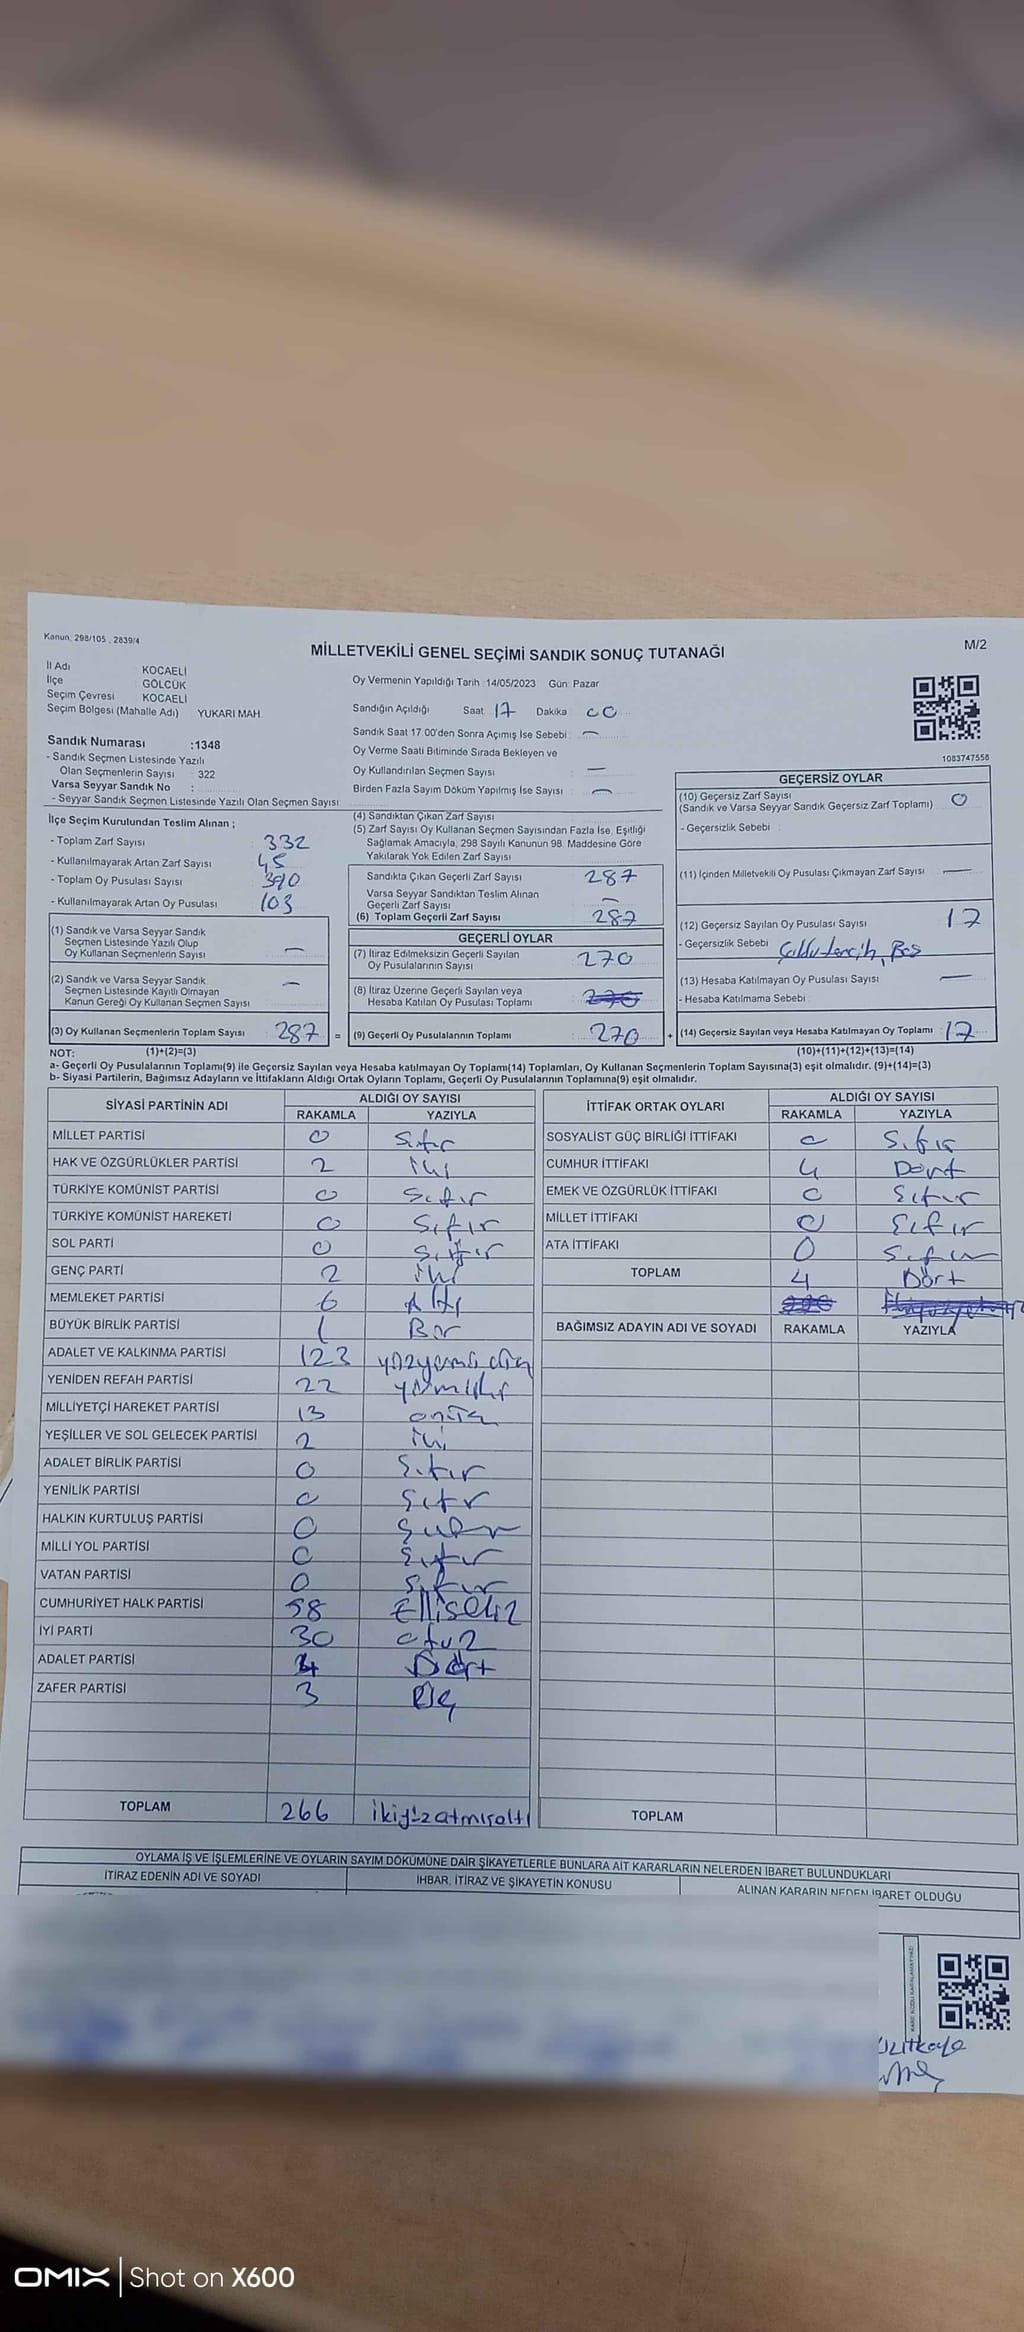 Kanun, 298/105 , 2839/4
M/2
MİLLETVEKİLİ GENEL SEÇİMİ SANDIK SONUÇ TUTANAĞI
İl Adı KOCAELİ
İlçe GÖLCÜK
Seçim Çevresi KOCAELİ
Seçim Bölgesi (Mahalle Adı) YUKARI MAH.
Sandık Numarası :1348
- Sandık Seçmen Listesinde Yazılı
Olan Seçmenlerin Sayısı : 322
Varsa Seyyar Sandık No :
- Seyyar Sandık Seçmen Listesinde Yazılı Olan Seçmen Sayısı
Oy Vermenin Yapıldığı Tarih :14/05/2023 Gün: Pazar
Sandığın Açıldığı Saat: 17 Dakika 00
Sandık Saat 17 00'den Sonra Açımış İse Sebebi : —
Oy Verme Saati Bitiminde Sırada Bekleyen ve
Oy Kullandırılan Seçmen Sayısı : —
Birden Fazla Sayım Döküm Yapılmış İse Sayısı : —
1083747558
İlçe Seçim Kurulundan Teslim Alınan ;
- Toplam Zarf Sayısı : 332
- Kullanılmayarak Artan Zarf Sayısı : 45
- Toplam Oy Pusulası Sayısı : 390
- Kullanılmayarak Artan Oy Pusulası : 103
(1) Sandık ve Varsa Seyyar Sandık
Seçmen Listesinde Yazılı Olup
Oy Kullanan Seçmenlerin Sayısı —
(2) Sandık ve Varsa Seyyar Sandık
Seçmen Listesinde Kayıtlı Olmayan
Kanun Gereği Oy Kullanan Seçmen Sayısı —
(3) Oy Kullanan Seçmenlerin Toplam Sayısı 287 =
(4) Sandıktan Çıkan Zarf Sayısı
(5) Zarf Sayısı Oy Kullanan Seçmen Sayısından Fazla İse, Eşitliği
Sağlamak Amacıyla, 298 Sayılı Kanunun 98. Maddesine Göre
Yakılarak Yok Edilen Zarf Sayısı
Sandıkta Çıkan Geçerli Zarf Sayısı : 287
Varsa Seyyar Sandıktan Teslim Alınan
Geçerli Zarf Sayısı : —
(6) Toplam Geçerli Zarf Sayısı : 287
GEÇERLİ OYLAR
(7) İtiraz Edilmeksizin Geçerli Sayılan
Oy Pusulalarının Sayısı : 270
(8) İtiraz Üzerine Geçerli Sayılan veya
Hesaba Katılan Oy Pusulası Toplamı
(9) Geçerli Oy Pusulalarının Toplamı : 270 +
GEÇERSİZ OYLAR
(10) Geçersiz Zarf Sayısı
(Sandık ve Varsa Seyyar Sandık Geçersiz Zarf Toplamı) : 0
- Geçersizlik Sebebi :
(11) İçinden Milletvekili Oy Pusulası Çıkmayan Zarf Sayısı : —
(12) Geçersiz Sayılan Oy Pusulası Sayısı : 17
- Geçersizlik Sebebi : Boş
(13) Hesaba Katılmayan Oy Pusulası Sayısı : —
- Hesaba Katılmama Sebebi :
(14) Geçersiz Sayılan veya Hesaba Katılmayan Oy Toplamı : 17
NOT: (1)+(2)=(3) (10)+(11)+(12)+(13)=(14)
a- Geçerli Oy Pusulalarının Toplamı(9) ile Geçersiz Sayılan veya Hesaba katılmayan Oy Toplamı(14) Toplamları, Oy Kullanan Seçmenlerin Toplam Sayısına(3) eşit olmalıdır. (9)+(14)=(3)
b- Siyasi Partilerin, Bağımsız Adayların ve İttifakların Aldığı Ortak Oyların Toplamı, Geçerli Oy Pusulalarının Toplamına(9) eşit olmalıdır.
SİYASİ PARTİNİN ADI ALDIĞI OY SAYISI
RAKAMLA YAZIYLA
MİLLET PARTİSİ 0 Sıfır
HAK VE ÖZGÜRLÜKLER PARTİSİ 2 iki
TÜRKİYE KOMÜNİST PARTİSİ 0 Sıfır
TÜRKİYE KOMÜNİST HAREKETİ 0 Sıfır
SOL PARTİ 0 Sıfır
GENÇ PARTİ 2 iki
MEMLEKET PARTİSİ 6 Altı
BÜYÜK BİRLİK PARTİSİ 1 Bir
ADALET VE KALKINMA PARTİSİ 123 yüzyirmiüç
YENİDEN REFAH PARTİSİ 22 yirmiiki
MİLLİYETÇİ HAREKET PARTİSİ 13 onüç
YEŞİLLER VE SOL GELECEK PARTİSİ 2 iki
ADALET BİRLİK PARTİSİ 0 Sıfır
YENİLİK PARTİSİ 0 Sıfır
HALKIN KURTULUŞ PARTİSİ 0 Sıfır
MİLLİ YOL PARTİSİ 0 Sıfır
VATAN PARTİSİ 0 Sıfır
CUMHURİYET HALK PARTİSİ 58 Ellisekiz
İYİ PARTİ 30 otuz
ADALET PARTİSİ 4 Dört
ZAFER PARTİSİ 3 Üç
TOPLAM 266 ikiyüzatmışaltı
İTTİFAK ORTAK OYLARI ALDIĞI OY SAYISI
RAKAMLA YAZIYLA
SOSYALİST GÜÇ BİRLİĞİ İTTİFAKI 0 Sıfır
CUMHUR İTTİFAKI 4 Dört
EMEK VE ÖZGÜRLÜK İTTİFAKI 0 Sıfır
MİLLET İTTİFAKI 0 Sıfır
ATA İTTİFAKI 0 Sıfır
TOPLAM 4 Dört
BAĞIMSIZ ADAYIN ADI VE SOYADI RAKAMLA YAZIYLA
TOPLAM
OYLAMA İŞ VE İŞLEMLERİNE VE OYLARIN SAYIM DÖKÜMÜNE DAİR ŞİKAYETLERLE BUNLARA AİT KARARLARIN NELERDEN İBARET BULUNDUKLARI
İTİRAZ EDENİN ADI VE SOYADI İHBAR, İTİRAZ VE ŞİKAYETİN KONUSU ALINAN KARARIN NEDEN İBARET OLDUĞU
KARE KODU KARALAMAYINIZ
OMIX Shot on X600